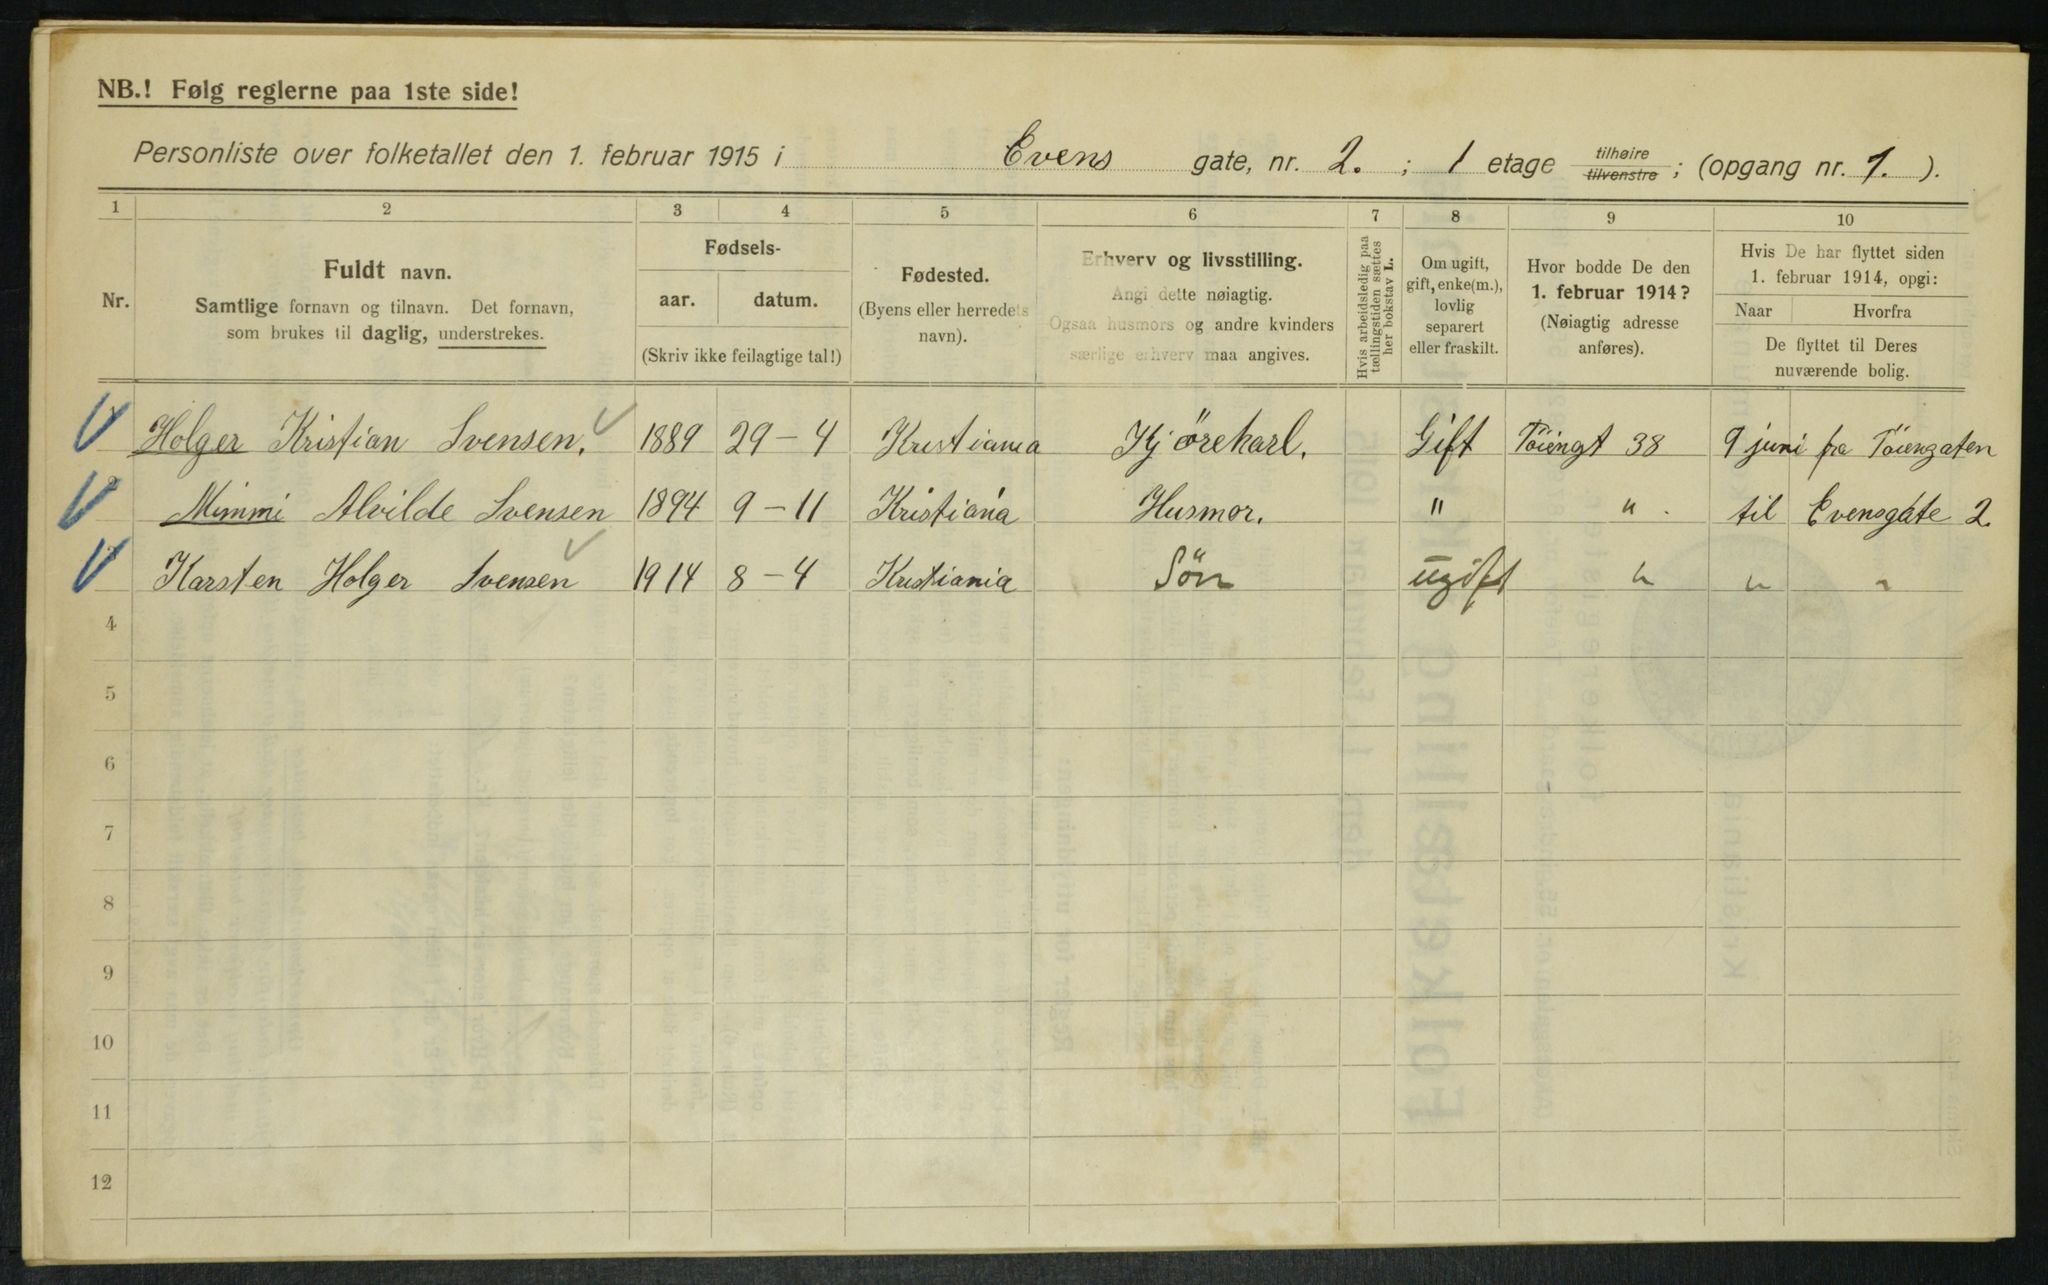 NB.! Følg reglerne paa 1ste side!
Personliste over folketallet den 1. februar 1915 i Evens gate, nr. 2. ; 1 etage tilhøire tilvenstre ; (opgang nr. 1. ).
1 2 3 4 5 6 7 8 9 10
Nr.
Fuldt navn.
Samtlige fornavn og tilnavn. Det fornavn,
som brukes til daglig, understrekes.
Fødsels-
aar. datum.
(Skriv ikke feilagtige tal!)
Fødested.
(Byens eller herredets
navn).
Erhverv og livsstilling.
Angi dette nøiagtig.
Ogsaa husmors og andre kvinders
særlige erhverv maa angives.
Hvis arbeidsledig paa
tællingstiden sættes
her bokstav L.
Om ugift,
gift, enke(m.),
lovlig
separert
eller fraskilt.
Hvor bodde De den
1. februar 1914?
(Nøiagtig adresse
anføres).
Hvis De har flyttet siden
1. februar 1914, opgi:
Naar Hvorfra
De flyttet til Deres
nuværende bolig.
1 Holger Kristian Svensen. 1889 29 - 4 Kristiania Kjörekarl. Gift Töiengt 38 9 juni fra Töiengaten
2 Mimmi Alvilde Svensen 1894 9 - 11 Kristiania Husmor. " " til Evensgate 2.
3 Karsten Holger Svensen 1914 8 - 4 Kristiania Sön ugift " " "
4
5
6
7
8
9
10
11
12